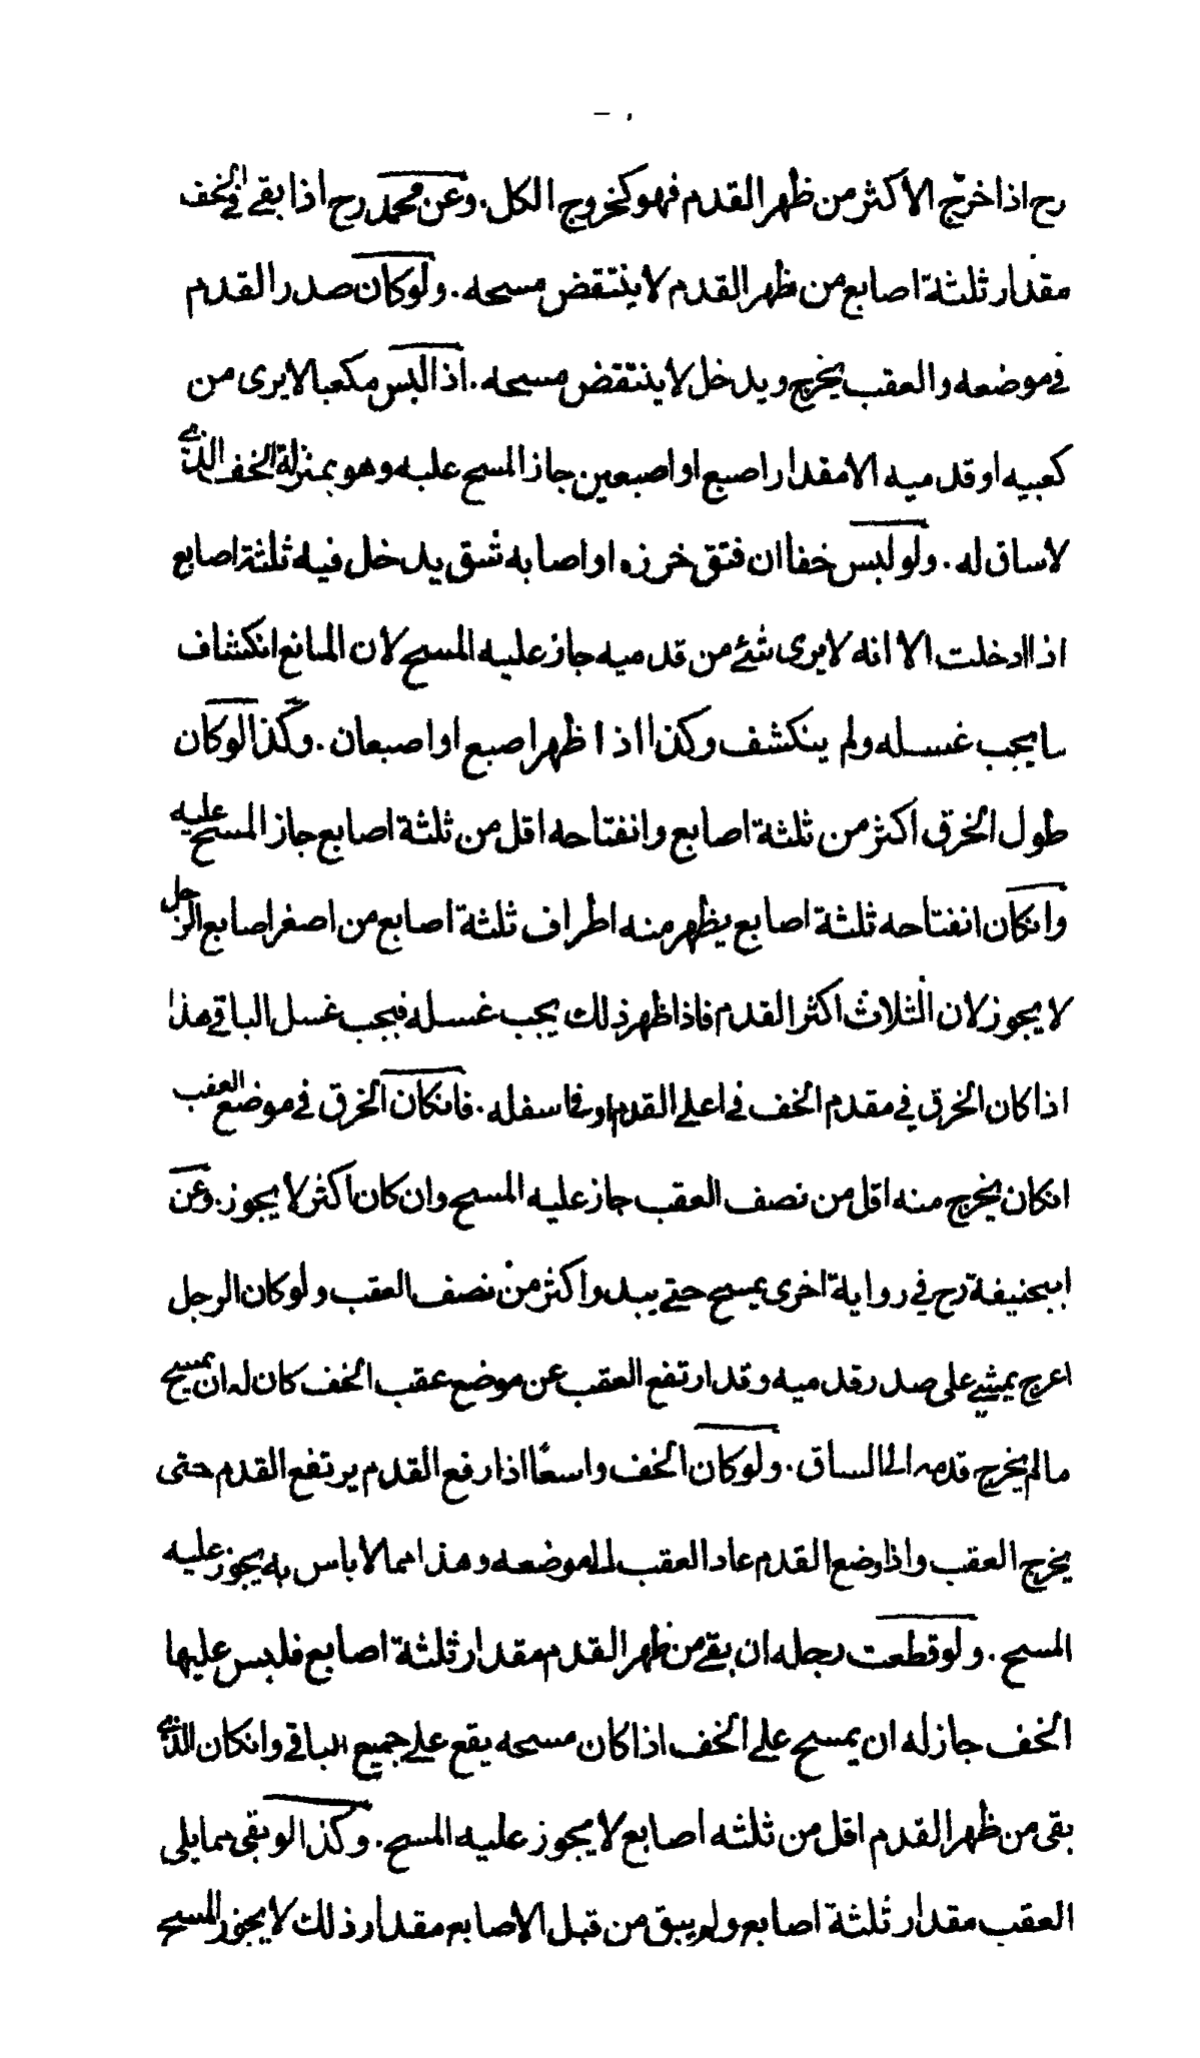 رح اذا خرج الاكثر من ظهر القدم فهو كخروج الكل. وعن محمد رح اذا بقے فے الخف
مقدار ثلثة اصابع من ظهر القدم لا ينتقض مسحه. ولو كان صدر القدم
فے موضعه والعقب يخرج ويدخل لا ينتقض مسحه. اذا لبس مكعبا لا يرى من
كعبيه او قدميه الا مقدار اصبع او اصبعين جاز المسح عليه وهو بمنزلة الخف الذے
لا ساق له. ولو لبس خفا ان فتق خرزه او اصابه شق يدخل فيه ثلثة اصابع
اذا ادخلت الا انه لا يرى شئے من قدميه جاز عليه المسح لان المانع انكشاف
ما يجب غسله ولم ينكشف وكذا اذا ظهر اصبع او اصبعان. وكذا لو كان
طول الخرق اكثر من ثلثة اصابع وانفتاحه اقل من ثلثة اصابع جاز المسح عليه
وانكان انفتاحه ثلثة اصابع يظهر منه اطراف ثلثة اصابع من اصغر اصابع الرجل
لا يجوز لان الثلاث اكثر القدم فاذا ظهر ذلك يجب غسله فيجب غسل الباقے هذا
اذا كان الخرق فے مقدم الخف فے اعلے القدم او فے اسفله. فانكان الخرق فے موضع العقب
انكان يخرج منه اقل من نصف العقب جاز عليه المسح وان كان اكثر لا يجوز. وعن
ابيحنيفة رح فے رواية اخرى يمسح حتے يبدو اكثر من نصف العقب ولو كان الرجل
اعرج يمشے على صدر قدميه وقد ارتفع العقب عن موضع عقب الخف كان له ان يمسح
مالم يخرج قدمه الى الساق. ولو كان الخف واسعًا اذا رفع القدم يرتفع القدم حتى
يخرج العقب واذا وضع القدم عاد العقب الى موضعه وهذا مما لا باس به يجوز عليه
المسح. ولو قطعت رجله ان بقے من ظهر القدم مقدار ثلثة اصابع فلبس عليها
الخف جاز له ان يمسح علے الخف اذا كان مسحه يقع علے جميع الباقے وانكان الذے
بقى من ظهر القدم اقل من ثلثه اصابع لا يجوز عليه المسح. وكذا لو بقى مما يلى
العقب مقدار ثلثة اصابع ولم يبق من قبل الاصابع مقدار ذلك لا يجوز المسح